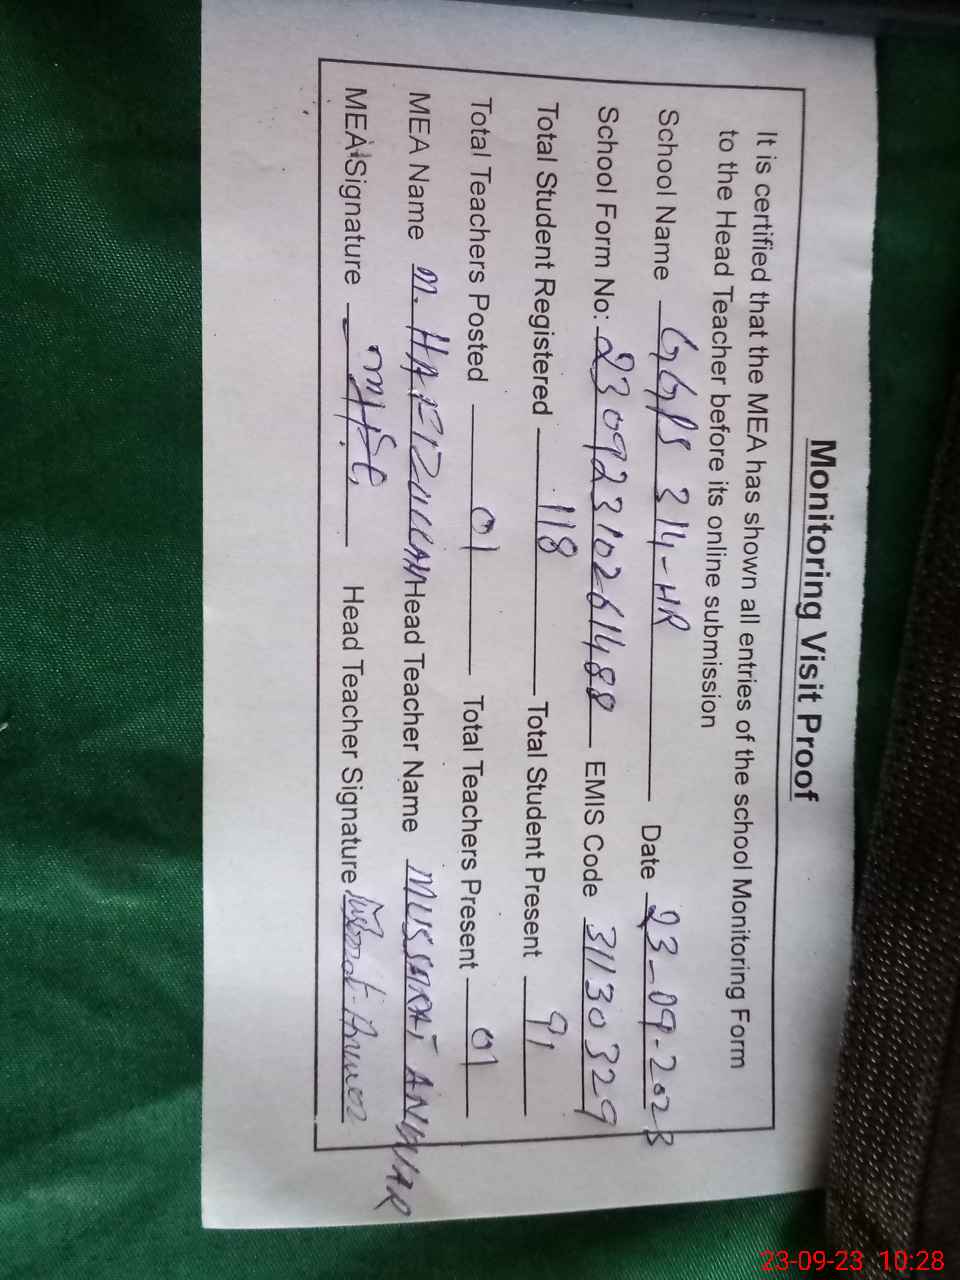 Monitoring Visit Proof
It is certified that the MEA has shown all entries of the school Monitoring Form
to the Head Teacher before its online submission
School Name GGPS 314-HR Date 23-09-2023
School Form No: 23092310261488 EMIS Code 31130329
Total Student Registered 118 Total Student Present 91
Total Teachers Posted 01 Total Teachers Present 01
MEA Name M. HAFIZULLAH Head Teacher Name MUSSARAT ANWAR
MEA Signature Head Teacher Signature
23-09-23 10:28